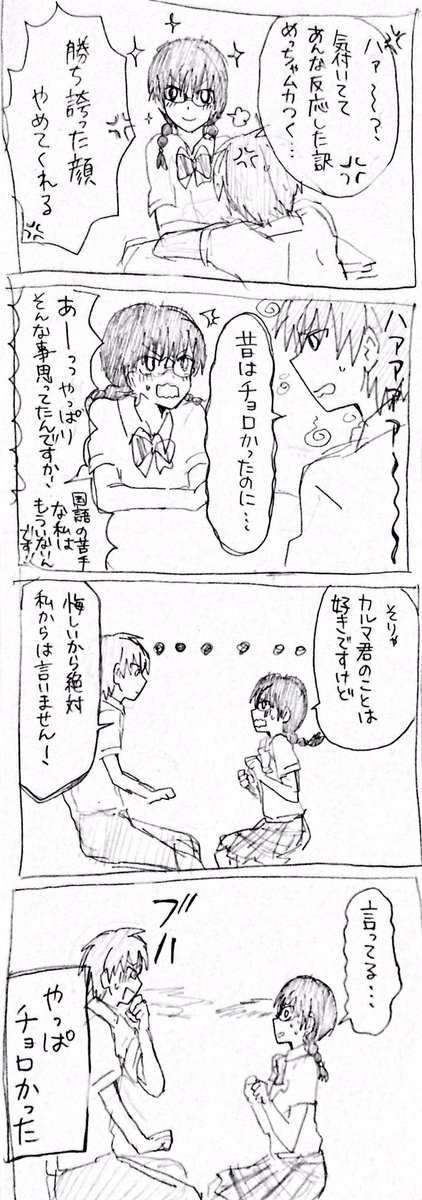 ハァ〜〜?
気付いてて
あんな反応した訳
めっちゃムカつく…
勝ち誇った顔
やめてくれる
ハァァァァ〜〜〜
昔はチョロかったのに…
あーっっやっぱり
そんな事思ってたんですか!
国語の苦手
な私は
もういないん
です!
そりゃ
カルマ君のことは
好きですけど
悔しいから絶対
私からは言いません!
言ってる…
ブハ
やっぱ
チョロかった